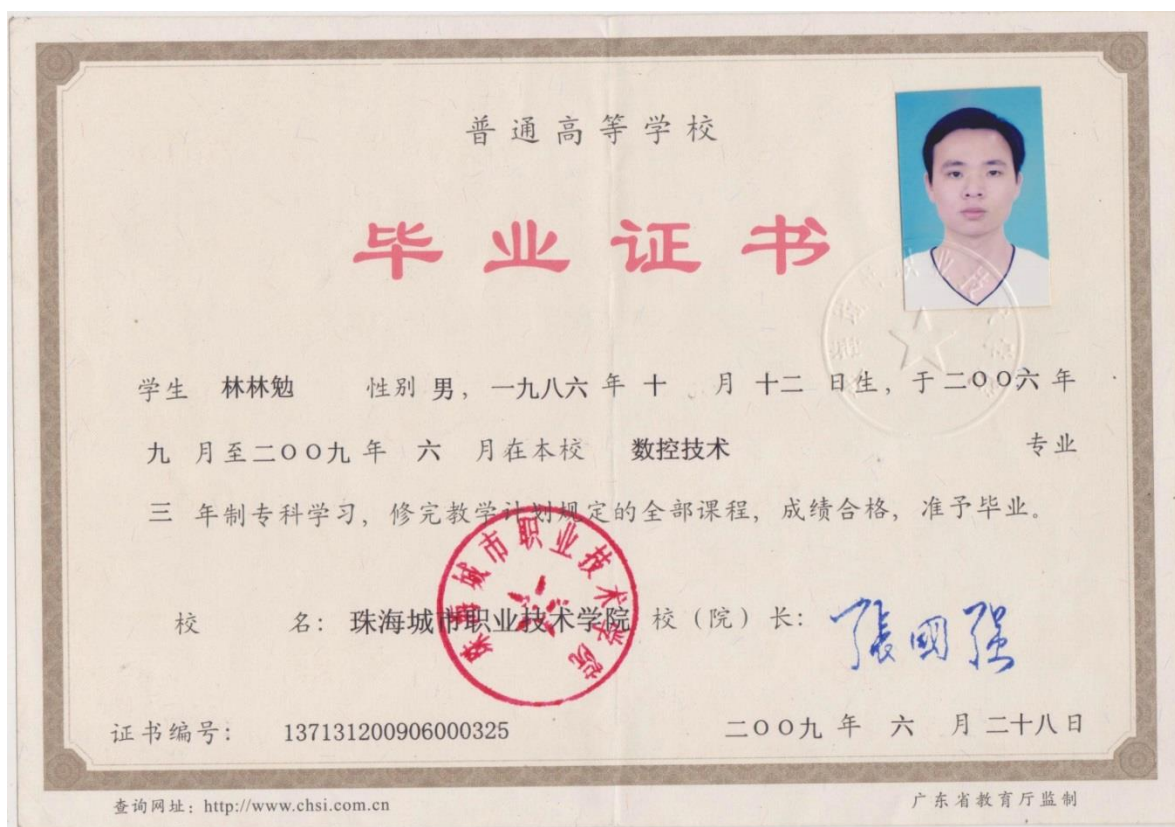 普通高等学校
毕业证书
学生 林林勉 性别 男，一九八六 年 十 月 十二 日生，于二〇〇六年
九 月至二〇〇九年 六 月在本校 数控技术 专业
三 年制专科学习，修完教学计划规定的全部课程，成绩合格，准予毕业。
珠海城市职业技术学院
校 名：珠海城市职业技术学院 校（院）长：張國强
证书编号： 137131200906000325 二〇〇九 年 六 月 二十八日
查询网址：http://www.chsi.com.cn 广东省教育厅监制